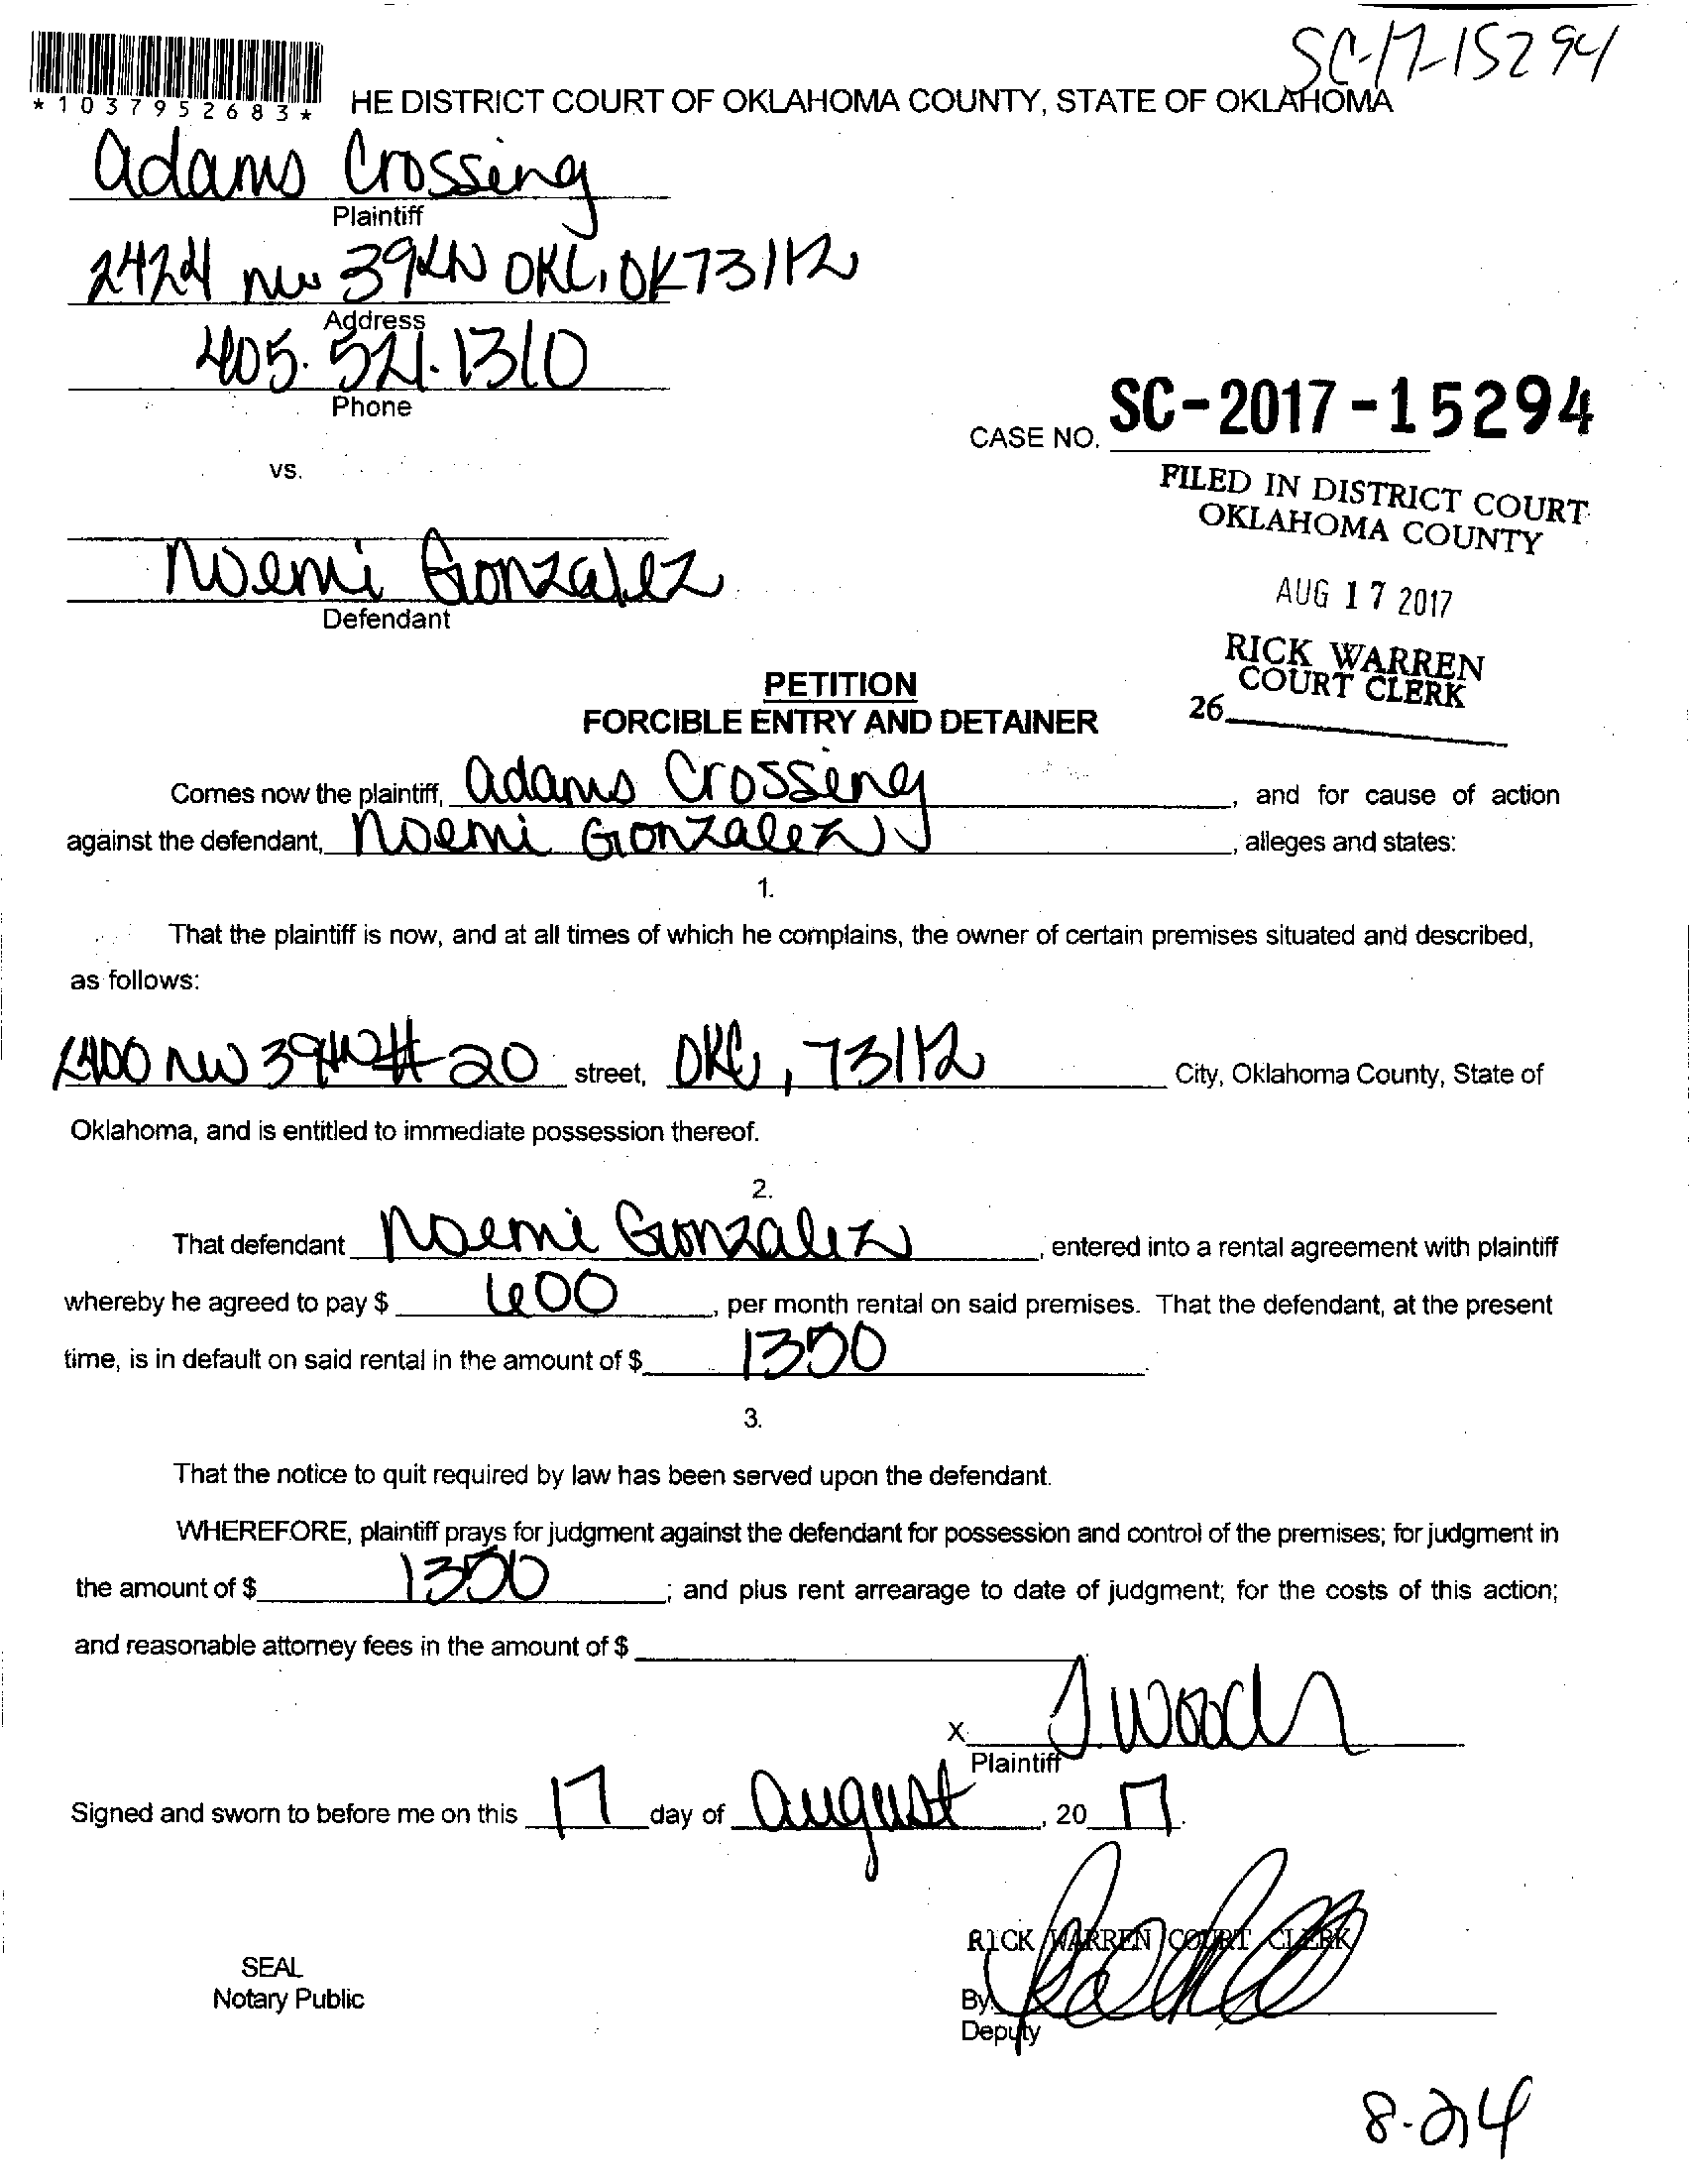 SC-17-15294
*1037952683*
HE DISTRICT COURT OF OKLAHOMA COUNTY, STATE OF OKLAHOMA
Adams Crossing
Plaintiff
2424 NW 39th OKC, OK 73112
Address
405.521.1310
Phone
CASE NO. SC-2017-15294
vs.
FILED IN DISTRICT COURT
OKLAHOMA COUNTY
Noemi Gonzalez
Defendant
AUG 17 2017
RICK WARREN
COURT CLERK
26
PETITION
FORCIBLE ENTRY AND DETAINER
Comes now the plaintiff, Adams Crossing, and for cause of action
against the defendant, Noemi Gonzalez, alleges and states:
1.
That the plaintiff is now, and at all times of which he complains, the owner of certain premises situated and described,
as follows:
2400 NW 39th # 20 street, OKC, 73112 City, Oklahoma County, State of
Oklahoma, and is entitled to immediate possession thereof.
2.
That defendant Noemi Gonzalez, entered into a rental agreement with plaintiff
whereby he agreed to pay $ 600, per month rental on said premises. That the defendant, at the present
time, is in default on said rental in the amount of $ 1350.
3.
That the notice to quit required by law has been served upon the defendant.
WHEREFORE, plaintiff prays for judgment against the defendant for possession and control of the premises; for judgment in
the amount of $ 1350; and plus rent arrearage to date of judgment; for the costs of this action;
and reasonable attorney fees in the amount of $
X J. Woods
Plaintiff
Signed and sworn to before me on this 17 day of August, 20 17.
RICK WARREN COURT CLERK
SEAL
Notary Public
By
Deputy
8-24